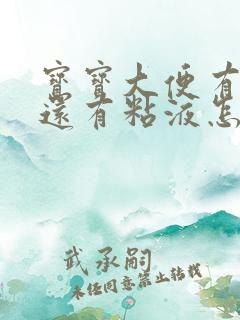 寶寶大便有
還有粘液怎
武承嗣
未经同意禁止转载